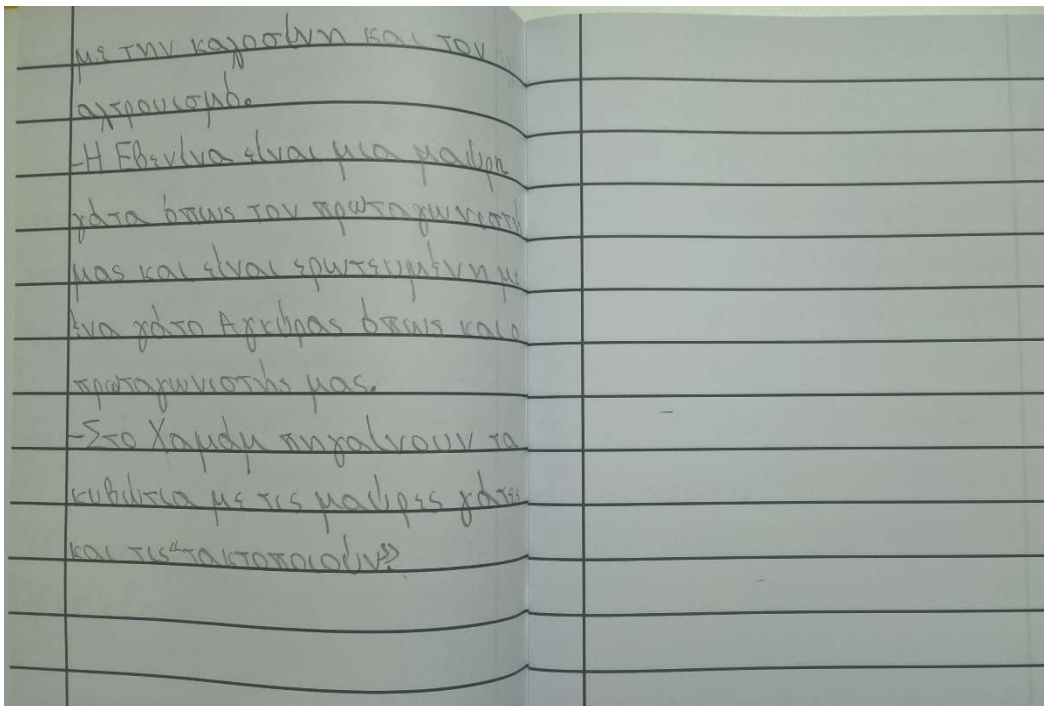 με την καλοσύνη και τον
αλτρουισμό.
-Η Εβενίνα είναι μια μαύρη
γάτα όπως τον πρωταγωνιστή
μας και είναι ερωτευμένη με
ένα γάτο Αγκύρας όπως και ο
πρωταγωνιστής μας.
-Στο Χαμάμ πηγαίνουν τα
κυβώτια με τις μαύρες γάτες
και τις "τακτοποιούν"